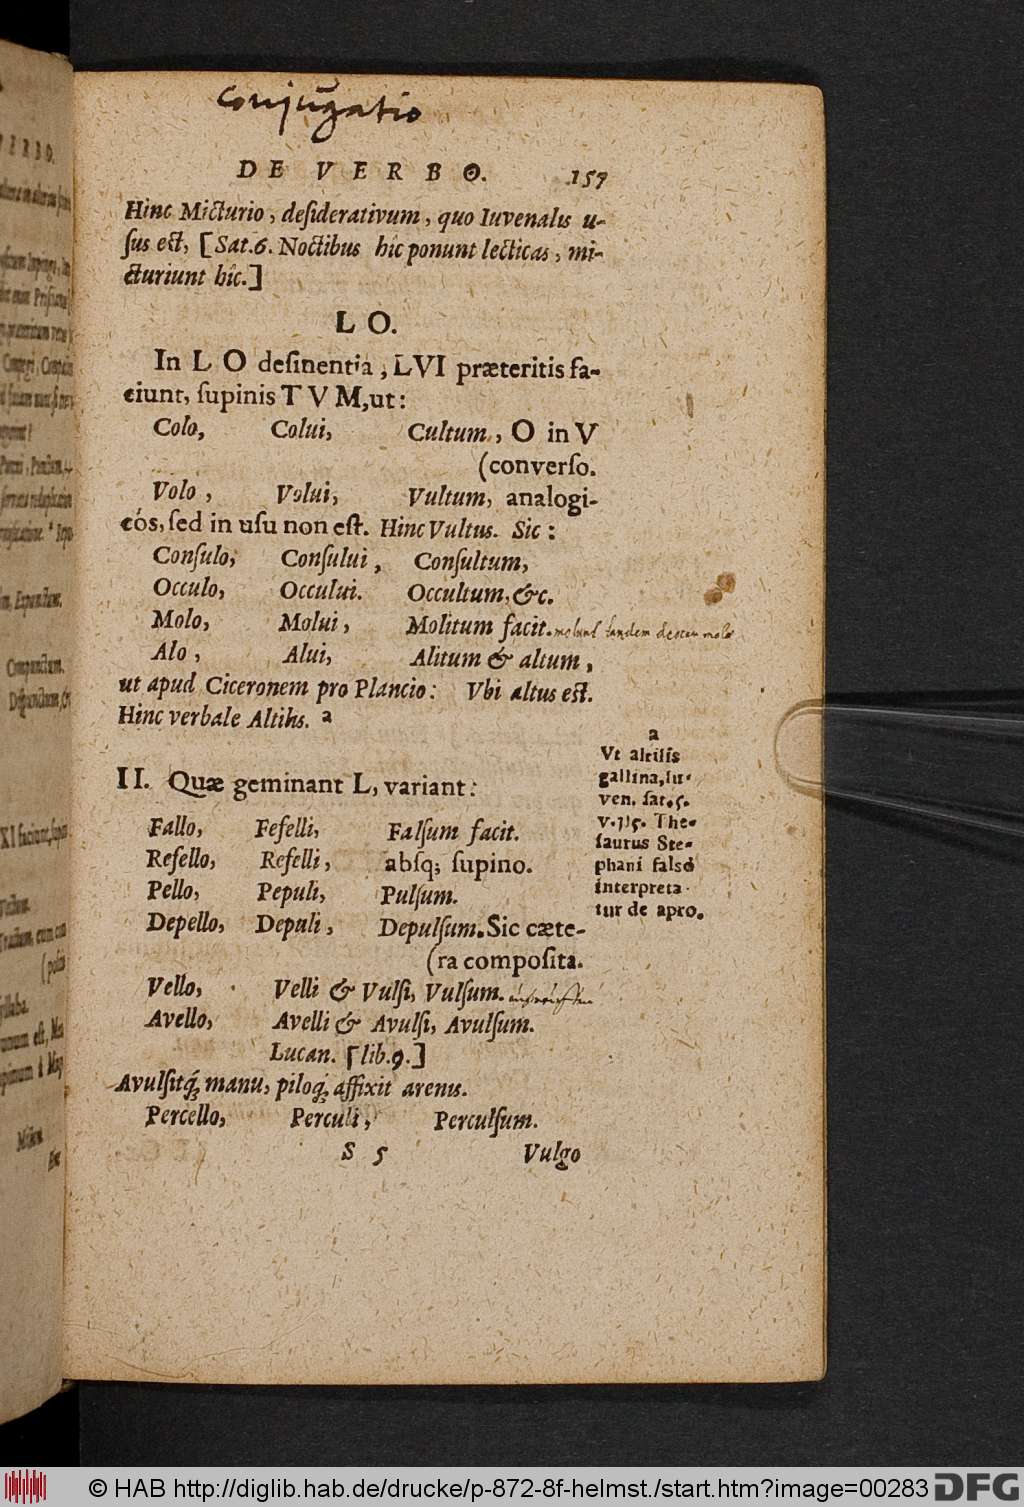 Conjugatio
DE VERBO. 159
Hinc Micturio, deſiderativum, quo Iuvenalis u-
ſus eſt, [Sat.6. Noctibus hîc ponunt lecticas, mi-
cturiunt hîc.]
LO.
In LO deſinentia, LVI præteritis fa-
ciunt, ſupinis TVM, ut:
Colo, Colui, Cultum, O in V
(converſo.
Volo, Volui, Vultum, analogi-
cós, ſed in uſu non eſt. Hinc Vultus. Sic:
Conſulo, Conſului, Conſultum,
Occulo, Occului. Occultum, &c.
Molo, Molui, Molitum facit.
Alo, Alui, Alitum & altum,
ut apud Ciceronem pro Plancio: Vbi altus eſt.
Hinc verbale Altilis. a
a
Vt altilis
gallina, Iu-
ven. ſat. 5.
v. 115. The-
ſaurus Ste-
phani falsò
interpreta-
tur de apro.
II. Quæ geminant L, variant:
Fallo, Fefelli, Falſum facit.
Refello, Refelli, abſq; ſupino.
Pello, Pepuli, Pulſum.
Depello, Depuli, Depulſum. Sic cæte-
(ra compoſita.
Vello, Velli & Vulſi, Vulſum.
Avello, Avelli & Avulſi, Avulſum.
Lucan. [lib.9.]
Avulſitq́; manu, piloq́; affixit arenis.
Percello, Perculi, Perculſum.
S 5 Vulgo
© HAB http://diglib.hab.de/drucke/p-872-8f-helmst./start.htm?image=00283 DFG